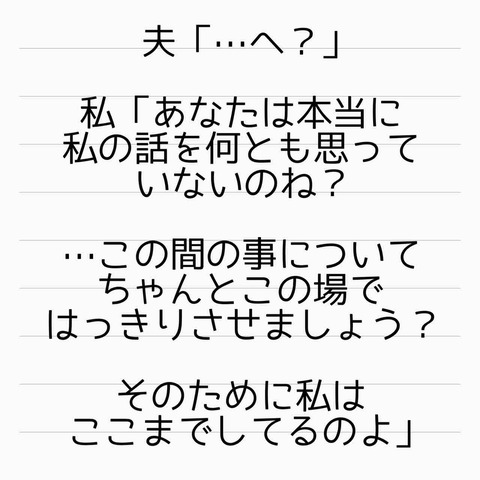 夫「…へ？」
私「あなたは本当に
私の話を何とも思って
いないのね？
…この間の事について
ちゃんとこの場で
はっきりさせましょう？
そのために私は
ここまでしてるのよ」